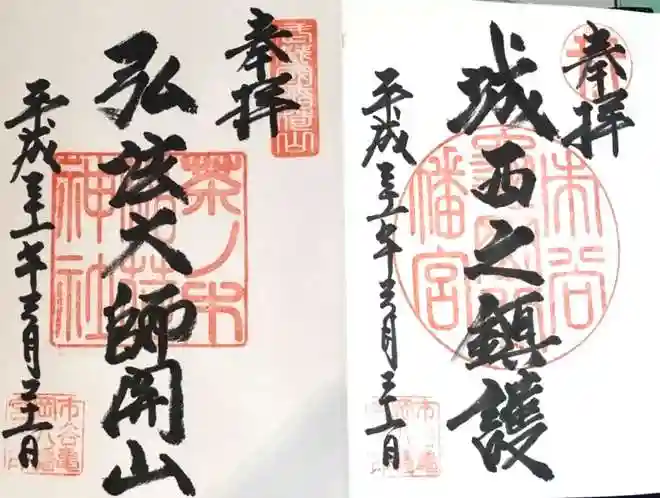 奉拝
城西之鎮護
市谷
亀岡八
幡宮
平成三十一年三月三十一日
奉拝
弘法大師開山
茶ノ木
稲荷
神社
平成三十一年三月三十一日
市谷亀
岡八幡